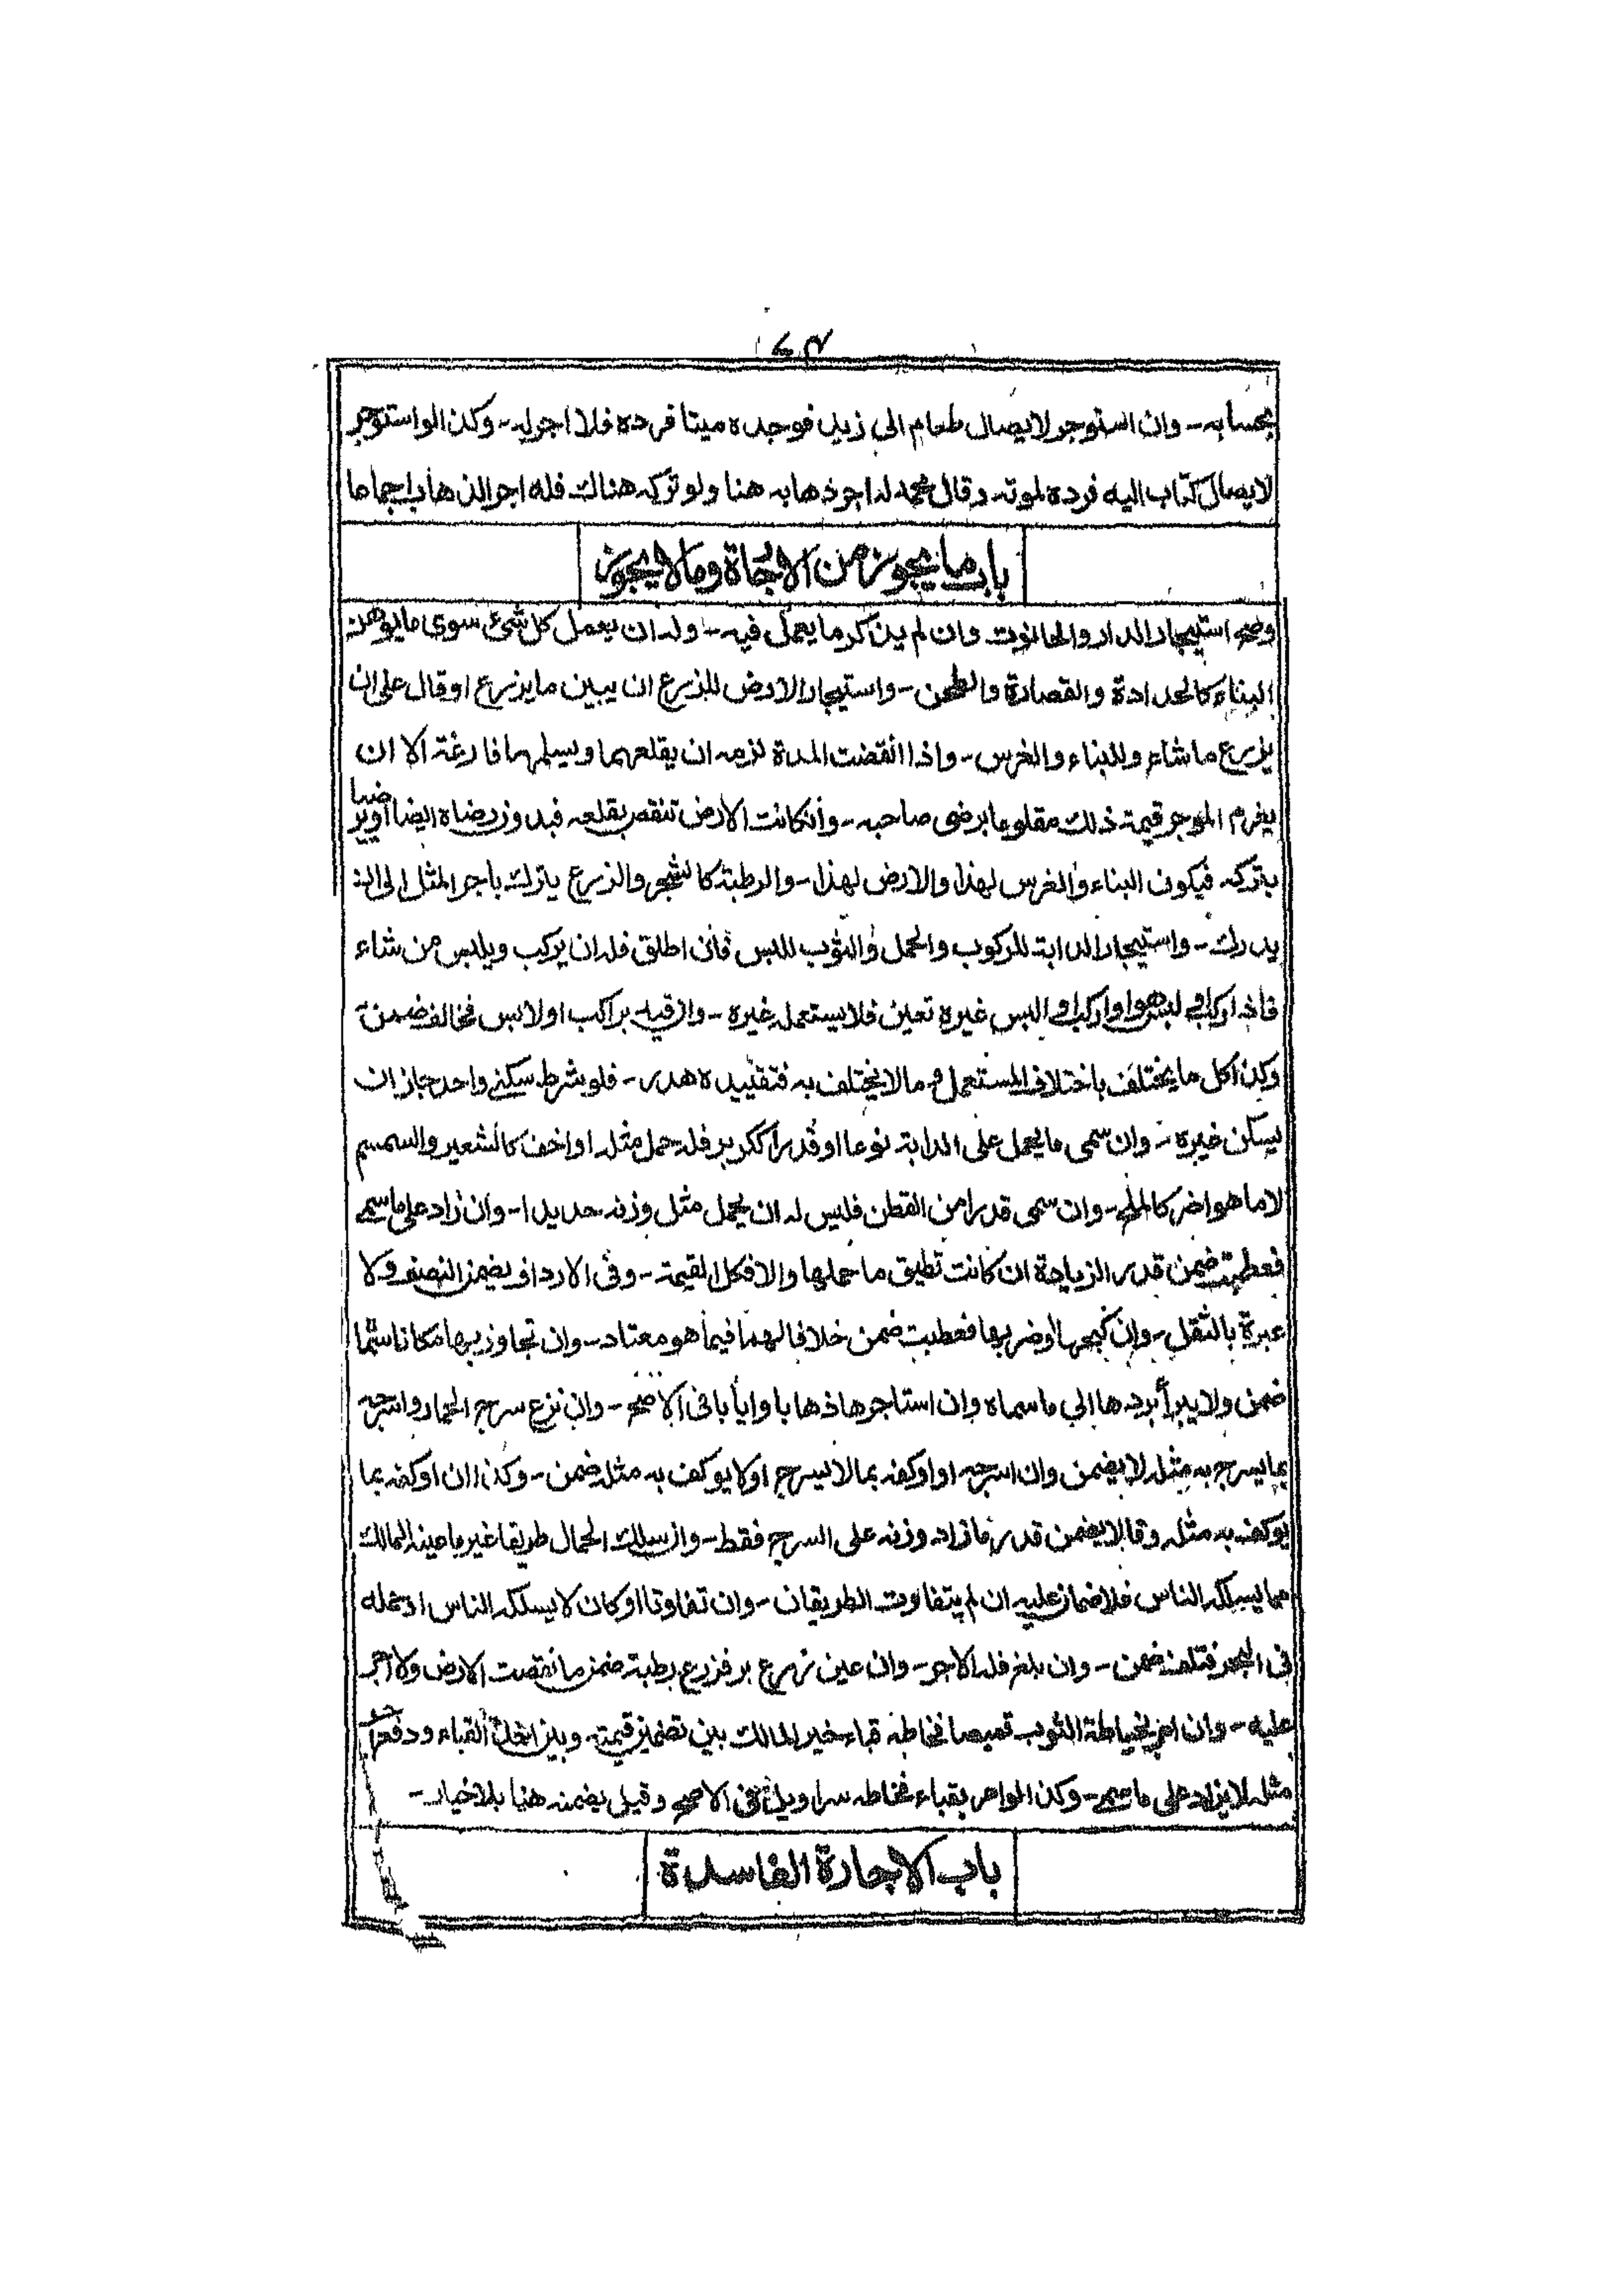 بحسابه - وان استوجر لايصال طعام الى زيد فوجده ميتا فرده فلا اجر له - وكذا لو استوجر
لايصال كتاب اليه فرده لموته وقال محمد له اجر ذهابه هنا ولو تركه هناك فله اجر الذهاب اجماعا
باب ما يجوز من الاجارة وما لا يجوز
وصح استيجار الدار والحانوت وان لم يذكر ما يعمل فيه - وله ان يعمل كل شئ سوى ما يوهن
البناء كالحدادة والقصارة والطحن - واستيجار الارض للزرع ان يبين ما يزرع او قال على ان
يزرع ما شاء وللبناء والغرس - واذا انقضت المدة لزمه ان يقلعهما ويسلمها فارغة الا ان
يغرم الموجر قيمة ذلك مقلوعا برضى صاحبه - وان كانت الارض تنقص بقلعه فبدون رضاه ايضا او يرضيا
بتركه فيكون البناء والغرس لهذا والارض لهذا - والرطبة كالشجر والزرع يترك باجر المثل الى ان
يدرك - واستيجار الدابة للركوب والحمل والثوب للبس فان اطلق فله ان يركب ويلبس من شاء
فاذا ركب او لبس هو او اركب او البس غيره تعين فلا يستعمله غيره - وان قيد براكب او لابس فخالف ضمن
وكذا كل ما يختلف باختلاف المستعمل وما لا يختلف به فتقييده هدر - فلو شرط سكنى واحد جاز ان
يسكن غيره - وان سمى ما يحمل على الدابة نوعا او قدرا ككر بر فله حمل مثله او اخف كالشعير والسمسم
لا ما هو اضر كالملح - وان سمى قدرا من القطن فليس له ان يحمل مثل وزنه حديدا - وان زاد على ما سمى
فعطبت ضمن قدر الزيادة ان كانت تطيق ما حملها والا فكل القيمة - وفى الارداف يضمن النصف ولا
عبرة بالثقل - وان كبحها او ضربها فعطبت ضمن خلافا لهما فيما هو معتاد - وان تجاوز بها مكانا سماه
ضمن ولا يبرأ بردها الى ما سماه وان استاجرها ذهابا وايابا فى الاصح - وان نزع سرج الحمار واسرجه
بما يسرج به مثله لا يضمن وان اسرجه او اوكفه بما لا يسرج او لا يوكف به مثله ضمن - وكذا ان اوكفه بما
يوكف به مثله وقالا يضمن قدر ما زاد وزنه على السرج فقط - وان سلك الحمال طريقا غير ما عينه المالك
مما يسلكه الناس فلا ضمان عليه ان لم يتفاوت الطريقان - وان تفاوتا او كان لا يسلكه الناس او حمله
فى البحر فتلف ضمن - وان بلغ فله الاجر - وان عين زرع بر فزرع رطبة ضمن ما نقصت الارض ولا اجر
عليه - وان امر بخياطة الثوب قميصا فخاطه قباء خير المالك بين تضمين قيمته وبين اخذ القباء ودفع اجر
مثله لا يزاد على ما سمى - وكذا لو امر بقباء فخاطه سراويل فى الاصح وقيل يضمنه هنا بلا خيار -
باب الاجارة الفاسدة